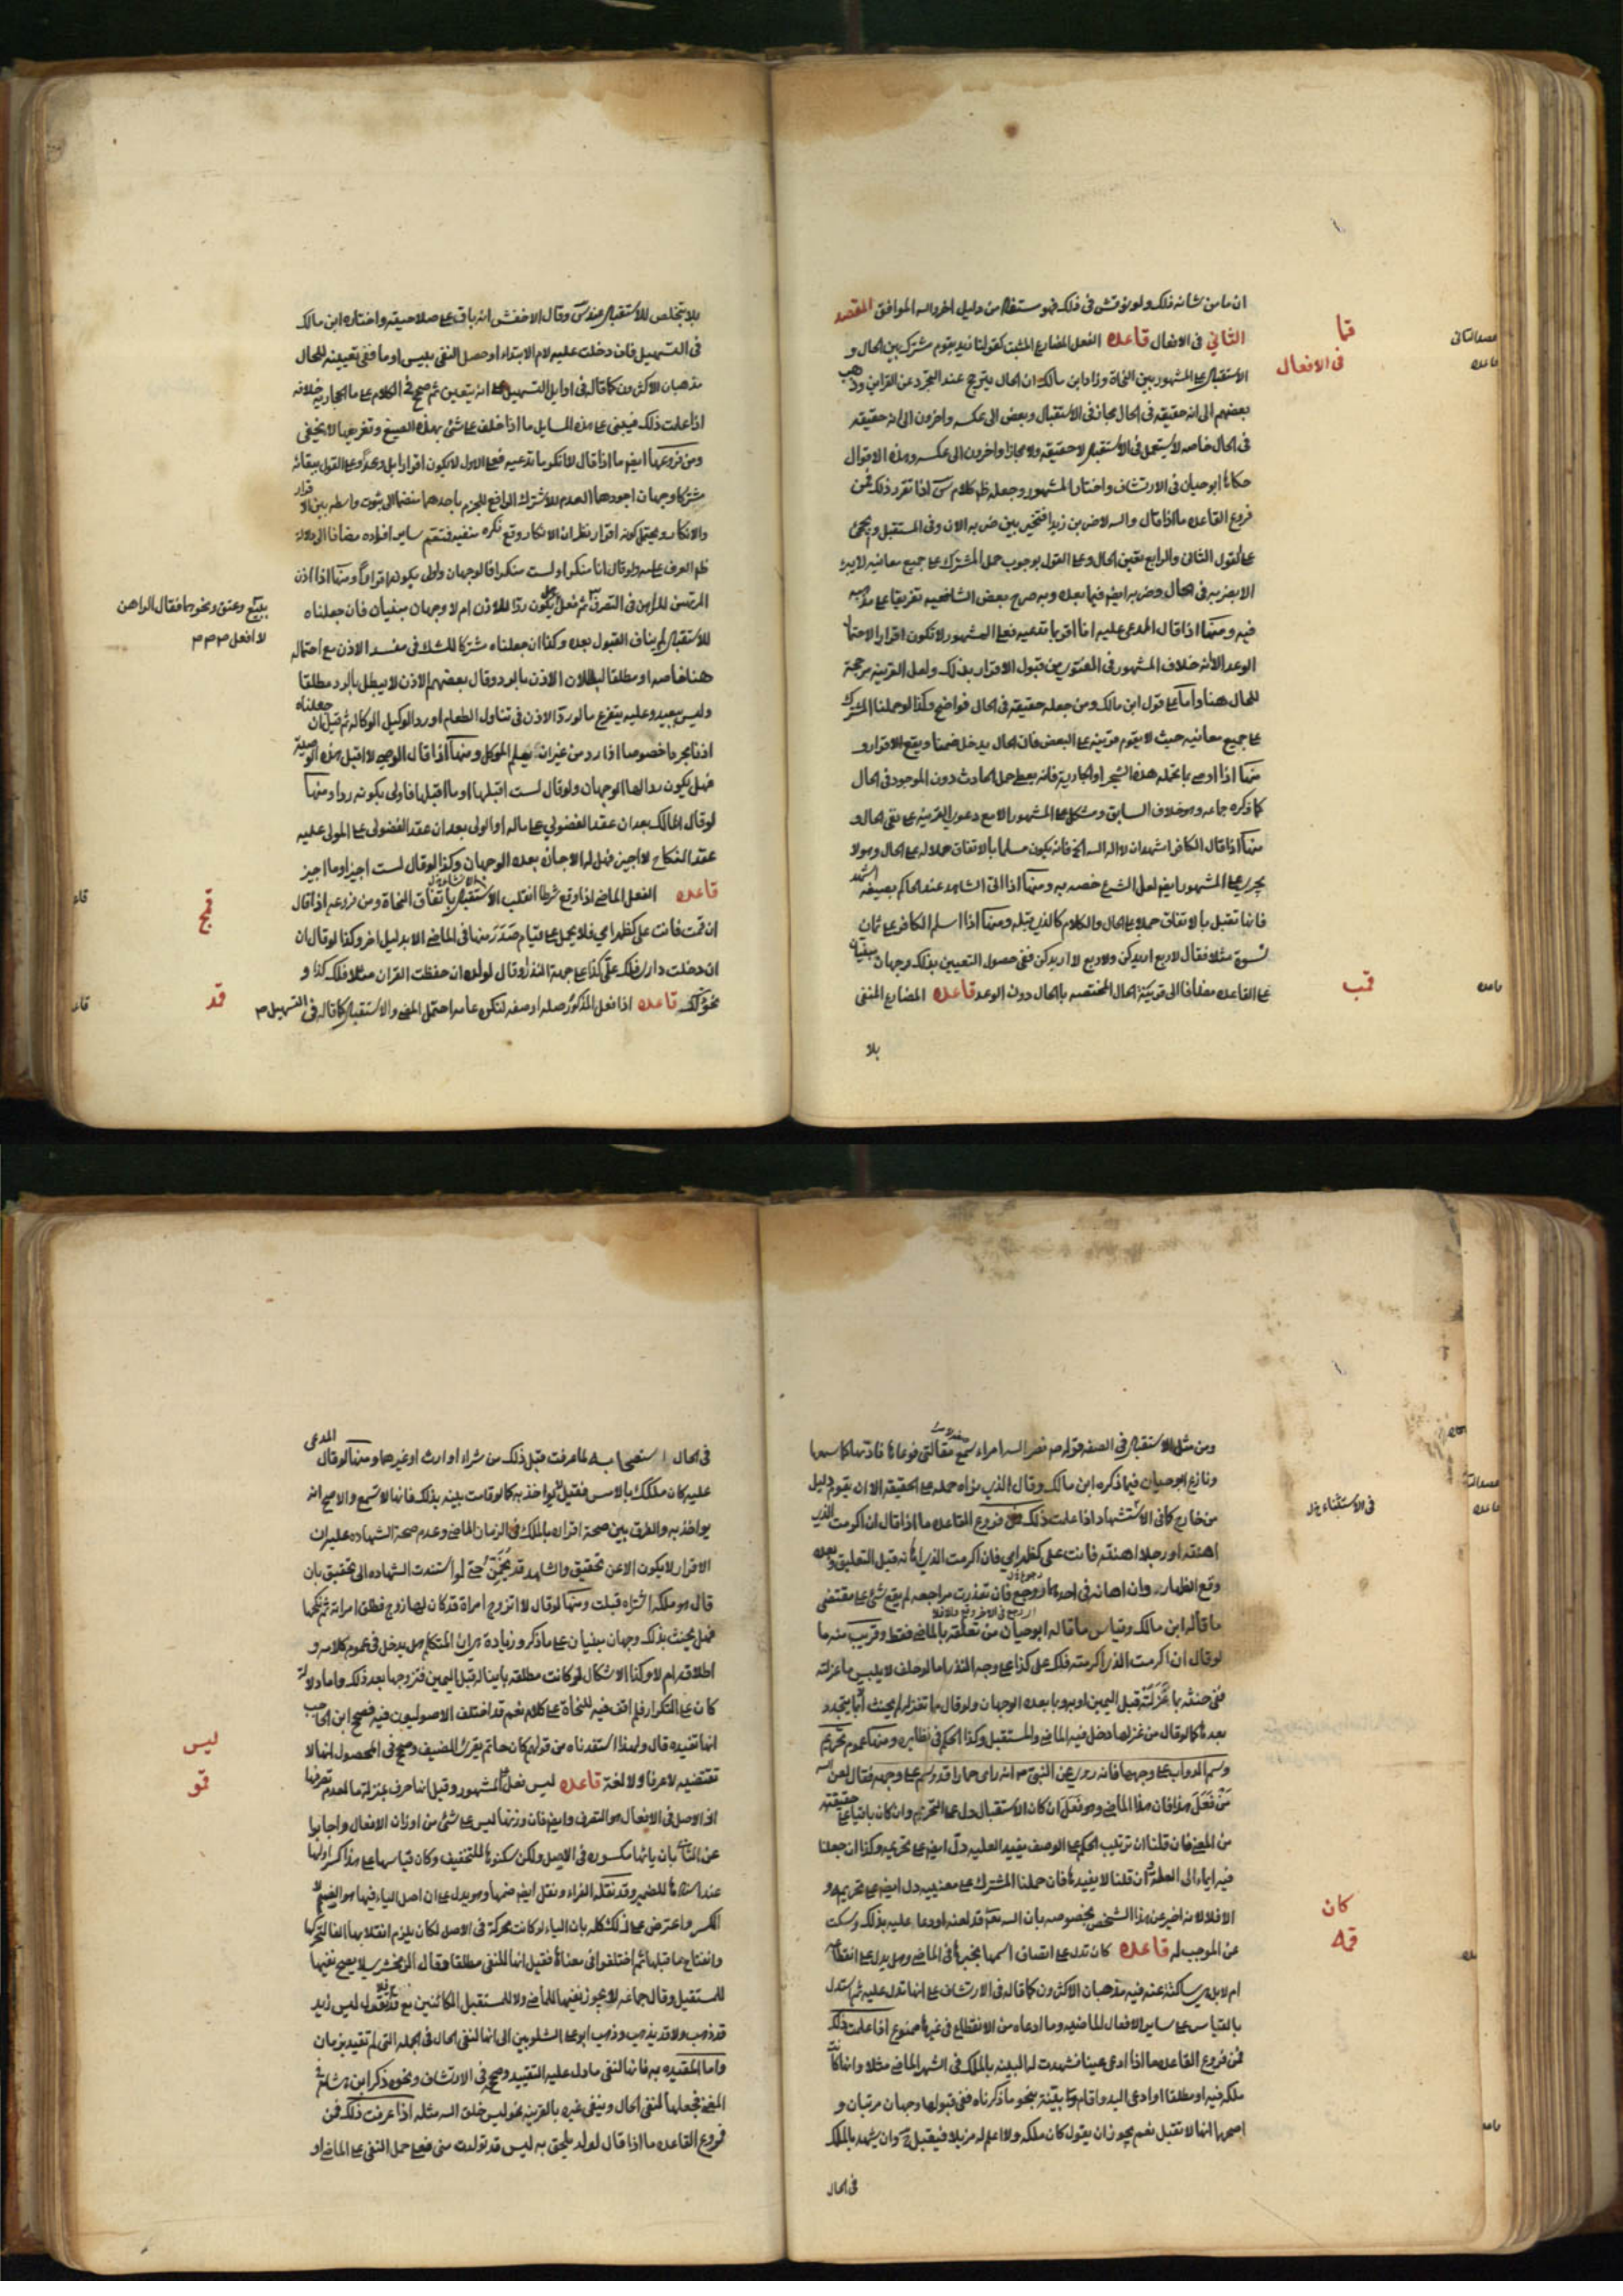 ان ما من شانه ذلك ولو نوقش فى ذلك فهو مستفاد من دليل اخر والله الموافق المقصد
الثاني فى الافعال قاعده الفعل المضارع المثبت كقولنا زيد يقوم مشترك بين الحال و
الاستقبال على المشهور بين النحاة وزاد ابن مالك ان الحال يترجح عند التجرد عن القراين وذهب
بعضهم الى انه حقيقه فى الحال مجاز فى الاستقبال وبعض الى عكسه واخرون الى انه حقيقه
فى الحال خاصه لا يستعمل فى الاستقبال لا حقيقه ولا مجازا واخرون الى عكسه وهذه الاقوال
حكاها ابو حيان فى الارتشاف واختار المشهور وجعله ظ كلام س اذا تقرر ذلك فمن
فروع القاعده ما اذا قال والله لاضربن زيدا فتخير بين ضربه الان وفى المستقبل ويجئ
على القول الثانى والرابع تعين الحال وعلى القول بوجوب حمل المشترك على جميع معانيه لا يبر
الا بضربه فى الحال وضربه ايضا فيما بعده وبه صرح بعض الشافعيه تفريعا على مذهبه
فيه ومنها اذا قال المدعى عليه انا اقر بما تدعيه فعلى المشهور لا تكون اقرارا لاحتمال
الوعد لانه خلاف المشهور فى الفتوى من قبول الاقرار بذلك ولعل القرينه مرجحة
للحال هنا واما على قول ابن مالك ومن جعله حقيقه فى الحال فواضح وكذا لو حملنا المشترك
على جميع معانيه حيث لا يقوم قرينه على البعض فان الحال يدخل ضمنا ويقع الاقرار و
منها اذا اوصى بما تحمله هذه الشجر او الجارية فانه يعطى حمل الحادث دون الموجود فى الحال
كما ذكره جماعه وهو خلاف السابق ومشكل على المشهور الا مع دعوى القرينه على نفى الحال و
منها اذا قال الكافر اشهد ان لا اله الا الله الخ فانه يكون مسلما بالاتفاق حملا له على الحال وهو لا
يجرى على المشهور ايضا لعل الشرع خصه به ومنها اذا اتى الشاهد عند الحاكم بصيغه اشهد
فانها تقبل بالاتفاق حملا على الحال والكلام كالذى قبله ومنها اذا اسلم الكافر على ثمان
نسوة مثلا فقال لاربع اريدكن ولاربع لا اريدكن ففى حصول التعيين بذلك وجهان مبنيان
على القاعده مضافا الى قرينة الحال المختصه بالحال دون الوعد قاعده المضارع المنفى
بلا
قا
فى الافعال
قب
بلا يتخلص للاستقبال عند س وقال الاخفش انه باق على صلاحيته واختاره ابن مالك
فى التسهيل فان دخلت عليه لام الابتداء او حصل النفى بليس او ما ففى تعيينه للحال
مذهبان الاكثرون كما قال فى اوايل التسهيل على انه يتعين ثم صحح فى الكلام على ما الحجازية خلافه
اذا علت ذلك فيبنى على هذه المسايل ما اذا حلف على شئ بهذه الصيغ وتفريعها لا يخفى
ومن فروعها ايضا ما اذا قال لا انكر ما تدعيه فعلى الاول لا يكون اقرارا بل وعدا وعلى القول ببقائه
مشتركا وجهان اجودهما العدم للاشتراك الرافع للجزم باحدهما منضما الى ثبوت واسطه بين الاقرار
والانكار ويحتمل كونه اقرارا نظرا الى ان الانكار وقع نكره منفيه فتعم ساير افراده مضافا الى دلالة
ظ العرف عليه ولو قال انا منكر او لست منكرا فالوجهان واولى بكونه اقرارا ومنها اذا اذن
المرتهن للراهن فى التصرف ثم فعل هل يكون ردا للاذن ام لا وجهان مبنيان فان جعلناه
للاستقبال لم يناف القبول بعده وكذا ان جعلناه مشتركا للشك فى مفسد الاذن مع احتماله
هنا خاصه او مطلقا لبطلان الاذن بالرد وقال بعضهم الاذن لا يبطل بالرد مطلقا
وليس ببعيد وعليه يتفرع ما لو رد الاذن فى تناول الطعام او رد الوكيل الوكاله ثم قبل ان جعلناه
اذنا مجردا خصوصا اذا رد من غير ان يعلم الموكل ومنها اذا قال الوصى لا اقبل هذه الوصية
فهل يكون ردا لها الوجهان ولو قال لست اقبلها او ما اقبلها فاولى بكونه ردا ومنها
لو قال المالك بعد ان عقد الفضولى على ماله او الولى بعد ان عقد الفضولى على المولى عليه
عقد النكاح لا اجيز فهل له الاجازة بعده الوجهان وكذا لو قال لست اجيز او ما اجيز
قاعده الفعل الماضى اذا وقع شرطا انقلب الى الاستقبال باتفاق النحاة ومن فروعه اذا قال
ان قمت فانت على كظهر امي فلا يحمل على قيام صدر منها فى الماضى الا بدليل اخر وكذا لو قال ان
ان دخلت دار فلك على كذا على جهة النذر او قال لولده ان حفظت القران مثلا فلك كذا و
نحو ذلك قاعده اذا فعل المذكور صله او صفه لنكره عامه احتمل المضى والاستقبال كما قاله فى التسهيل
ببيع وعتق ونحوهما فقال الراهن
لا افعل
قج
قد
ومن مثل الاستقبال فى الصفه قوله ص نضر الله امراء سمع مقالتى فوعاها فاداها كما سمعها
ونازع ابو حيان فيما ذكره ابن مالك وقال الذى نراه حمله على الحقيقه الا ان يقوم دليل
من خارج كما فى الاستشهاد اذا علمت ذلك فمن فروع القاعده ما اذا قال ان اكرمت الذى
اهنته او رجلا اهنته فانت على كظهر امي فان اكرمت الذى اهانه قبل التعليق وبعده
وقع الظهار وان اهانه فى احدهما روجع فان تعذرت مراجعه لم يقع شئ على مقتضى
ما قاله ابن مالك وقياس ما قاله ابو حيان من تعلقه بالماضى فقط وقريب منه ما
لو قال ان اكرمت الذى اكرمته فلك على كذا على وجه النذر اما لو حلف لا يلبس ما غزلته
ففى حنثه بما غزلته قبل اليمين او بما بعده الوجهان ولو قال ما تغزله لم يحنث الا بما يتجدد
بعدها كما لو قال من غزلها دخل فيه الماضى والمستقبل وكذا الحكم فى نظايره ومنها عموم تحريم
وسم الدواب على وجهها فانه روى عن النبى ص انه راى حمارا قد وسم على وجهه فقال لعن الله
من فعل هذا فان هذا الماضى وهو فعل ان كان للاستقبال دل على التحريم وان كان باقيا على حقيقته
من المضى فان قلنا ان ترتيب الحكم على الوصف يفيد العليه دل ايضا على تحريمه وكذا ان جعلنا
فيه ايماء الى العله وان قلنا لا يفيدها فان حملنا المشترك على معنييه دل ايضا على تحريمه و
الا فلا لانه اخبر عن هذا الشخص بخصوصه بان الله تعالى قد لعنه او دعا عليه بذلك وسكت
عن الموجب له قاعده كان تدل على اتصاف اسمها بخبرها فى الماضى وهل يدل على انقطاعه
ام لا بل هى ساكتة عنه فيه مذهبان الاكثرون كما قاله فى الارتشاف على انها تدل عليه ثم استدل
بالقياس على ساير الافعال الماضيه وما ادعاه من الانقطاع فى غيرها ممنوع اذا علمت ذلك
فمن فروع القاعده ما اذا ادعى عينا فشهدت له البينه بالملك فى الشهر الماضى مثلا وانها كانت
ملكه فيه او مطلقا او ادعى اليد واقام بها بينة بنحو ما ذكرناه ففى قبولها وجهان مرتبان و
اصحهما انها لا تقبل نعم يجوز ان يقول كان ملكه ولا اعلم له مزيلا فيقبل وان يشهد بالملك
فى الحال
فى الاستثناء
كان
قه
فى الحال استصحابا لما عرفت قبل ذلك من شراء او ارث او غيرهما ومنها لو قال المدعى
عليه كان ملكك بالامس فقيل لا يواخذ به كما لو قامت بينه بذلك فانها لا تسمع والاصح انه
يواخذ به والفرق بين صحة اقراره بالملك فى الزمان الماضى وعدم صحة الشهاده عليه ان
الاقرار لا يكون الا عن تحقيق والشاهد قد يخمن حتى لو استندت الشهاده الى تحقيق بان
قال هو ملكه اشتراه قبلت ومنها لو قال لا اتزوج امراة قد كان لها زوج فطلق امراته ثم نكحها
فهل يحنث بذلك وجهان مبنيان على ما ذكر وزيادة هى ان المتكلم هل يدخل فى عموم كلامه و
اطلاقه ام لا وكذا الاشكال لو كانت مطلقه باينا له قبل اليمين فتزوجها بعد ذلك واما دلالة
كان على التكرار فلم اقف فيه للنحاة على كلام نعم قد اختلف الاصوليون فيه فصحح ابن الحاجب
انها تفيده قال ولهذا استفدناه من قولهم كان حاتم يقرى الضيف وصحح فى المحصول انها لا
تقتضيه لا عرفا ولا لغة قاعده ليس فعل على المشهور وقيل انها حرف بمنزلة ما لعدم تصرفها
اذ الاصل فى الافعال هو التصرف وايضا فان وزنها ليس على شئ من اوزان الافعال واجابوا
عن الثانى بان يائها مكسوره فى الاصل ولكن سكنوها للتخفيف وكان قياسها على هذا كسر اولها
عند اسنادها للضمير وقد نقله الفراء ونقل ايضا ضمها وهو يدل على ان اصل الياء فيها هو الضم لا
الكسر واعترض على ذلك كله بان الياء لو كانت محركة فى الاصل لكان يلزم انقلابها الفا لتحركها
وانفتاح ما قبلها ثم اختلفوا فى معناها فقيل انها للنفى مطلقا فقال الزمخشرى لا يصح نفيها
للمستقبل وقال جماعه لا يجوز نفيها للماضى ولا للمستقبل الكائنين مع قد فلا تقول ليس زيد
قد ذهب ولا قد يذهب وذهب ابو على الشلوبين الى انها لنفى الحال فى الجمله التى لم تقيد بزمان
واما المقيده به فانها لنفى ما دل عليه التقييد وصححه فى الارتشاف ونحوه ذكر ابن هشام فى
المغنى فجعلها لنفى الحال وينفى غيره بالقرينه نحو ليس خلق الله مثله اذا عرفت ذلك فمن
فروع القاعده ما اذا قال لولد يلحق به ليس قد تولدت منى فعلى حمل النفى على الماضى او
ليس
قو